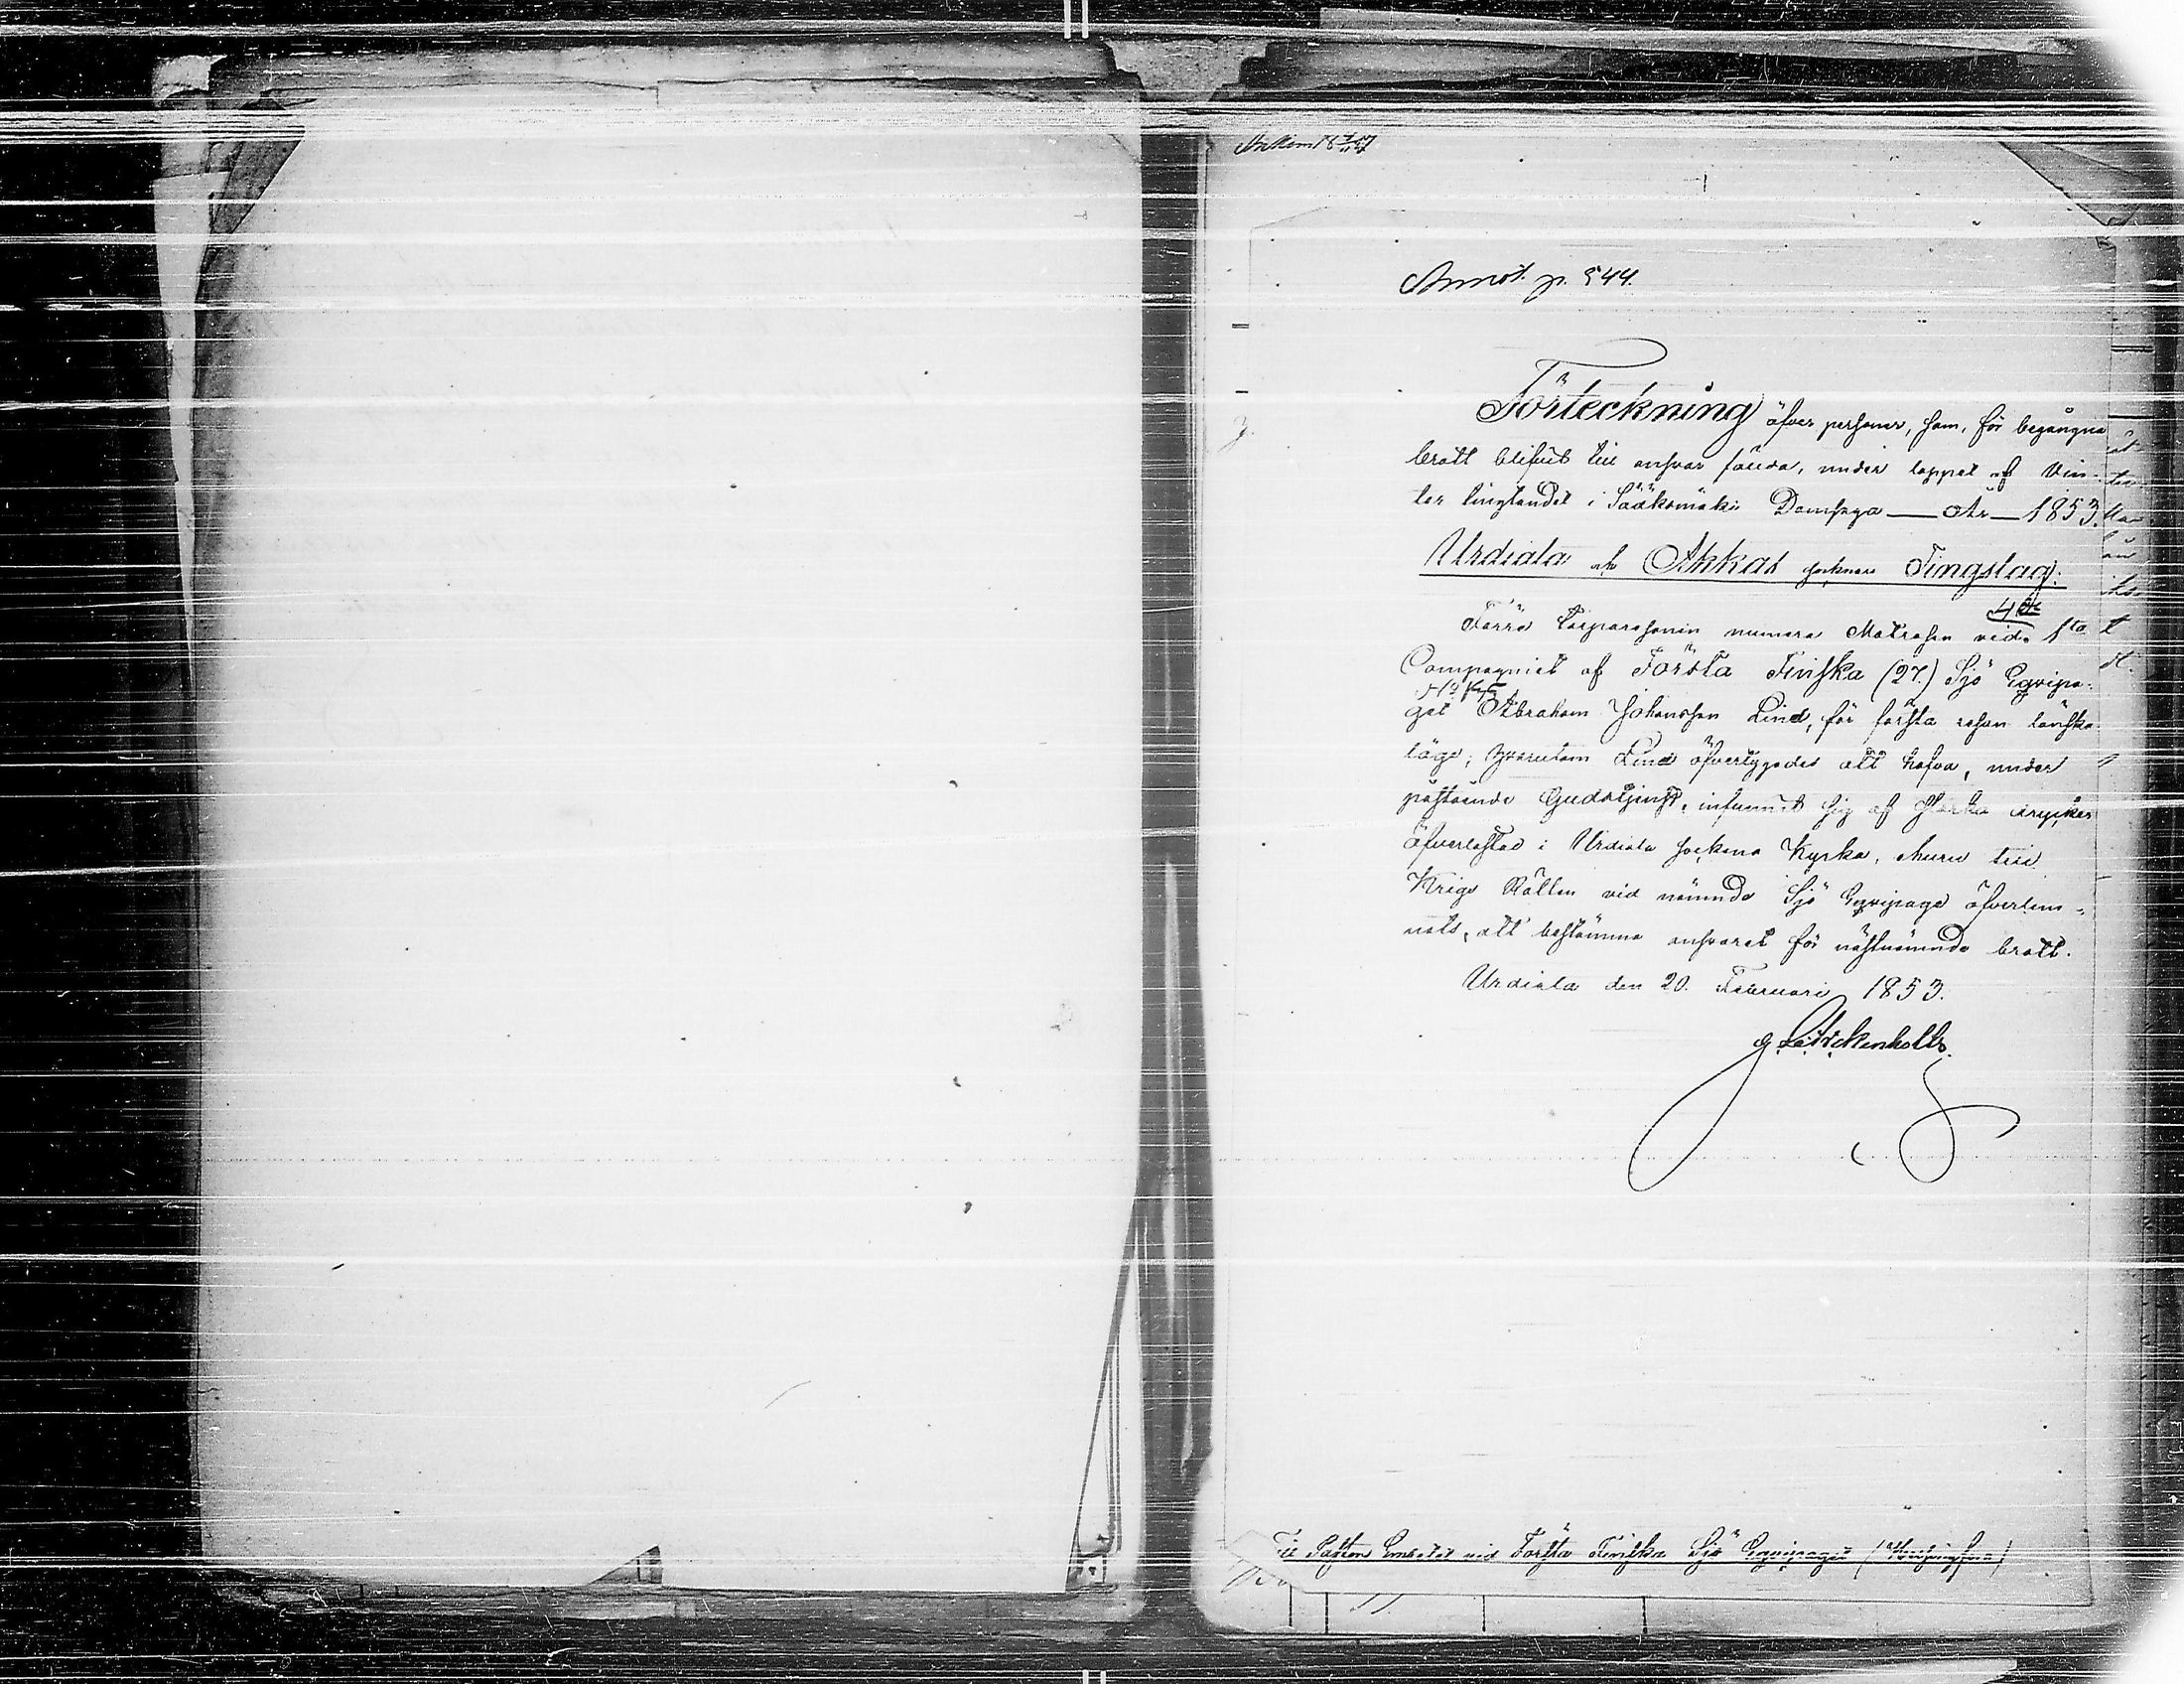 Annot. p. 544.
Förteckning öfver personer, som, för begångna
brott blifvit till ansvar fällda, under loppet af Vin-
ter tingtandet i Sääksmäki Domsaga — År — 1853.
Urdiala och Akkas socknars Tingslag:
4de
Förre Torparesonen numera Matrosen vid 1sta
Compagniet af Första Finska (27.) Sjö Eqvipa-
get Abraham Johansson Lind, för första resan lönska-
läge; hvarutom Lind öfvertygades att hafva, under
påstående Gudstjenst, infunnit sig af starka drycker
öfverlastad i Urdiala sockens Kyrka, ehuru till
Krigs Rätten vid nämnde Sjö Eqvipage öfverlem-
nats, att bestämma ansvaret för nästnämnde brott.
Urdiala den 20. Februari 1853.
Arckenholtz.
Till Pastors Embetet vid Första Finska Sjö Eqvipaget (Helsingfors)